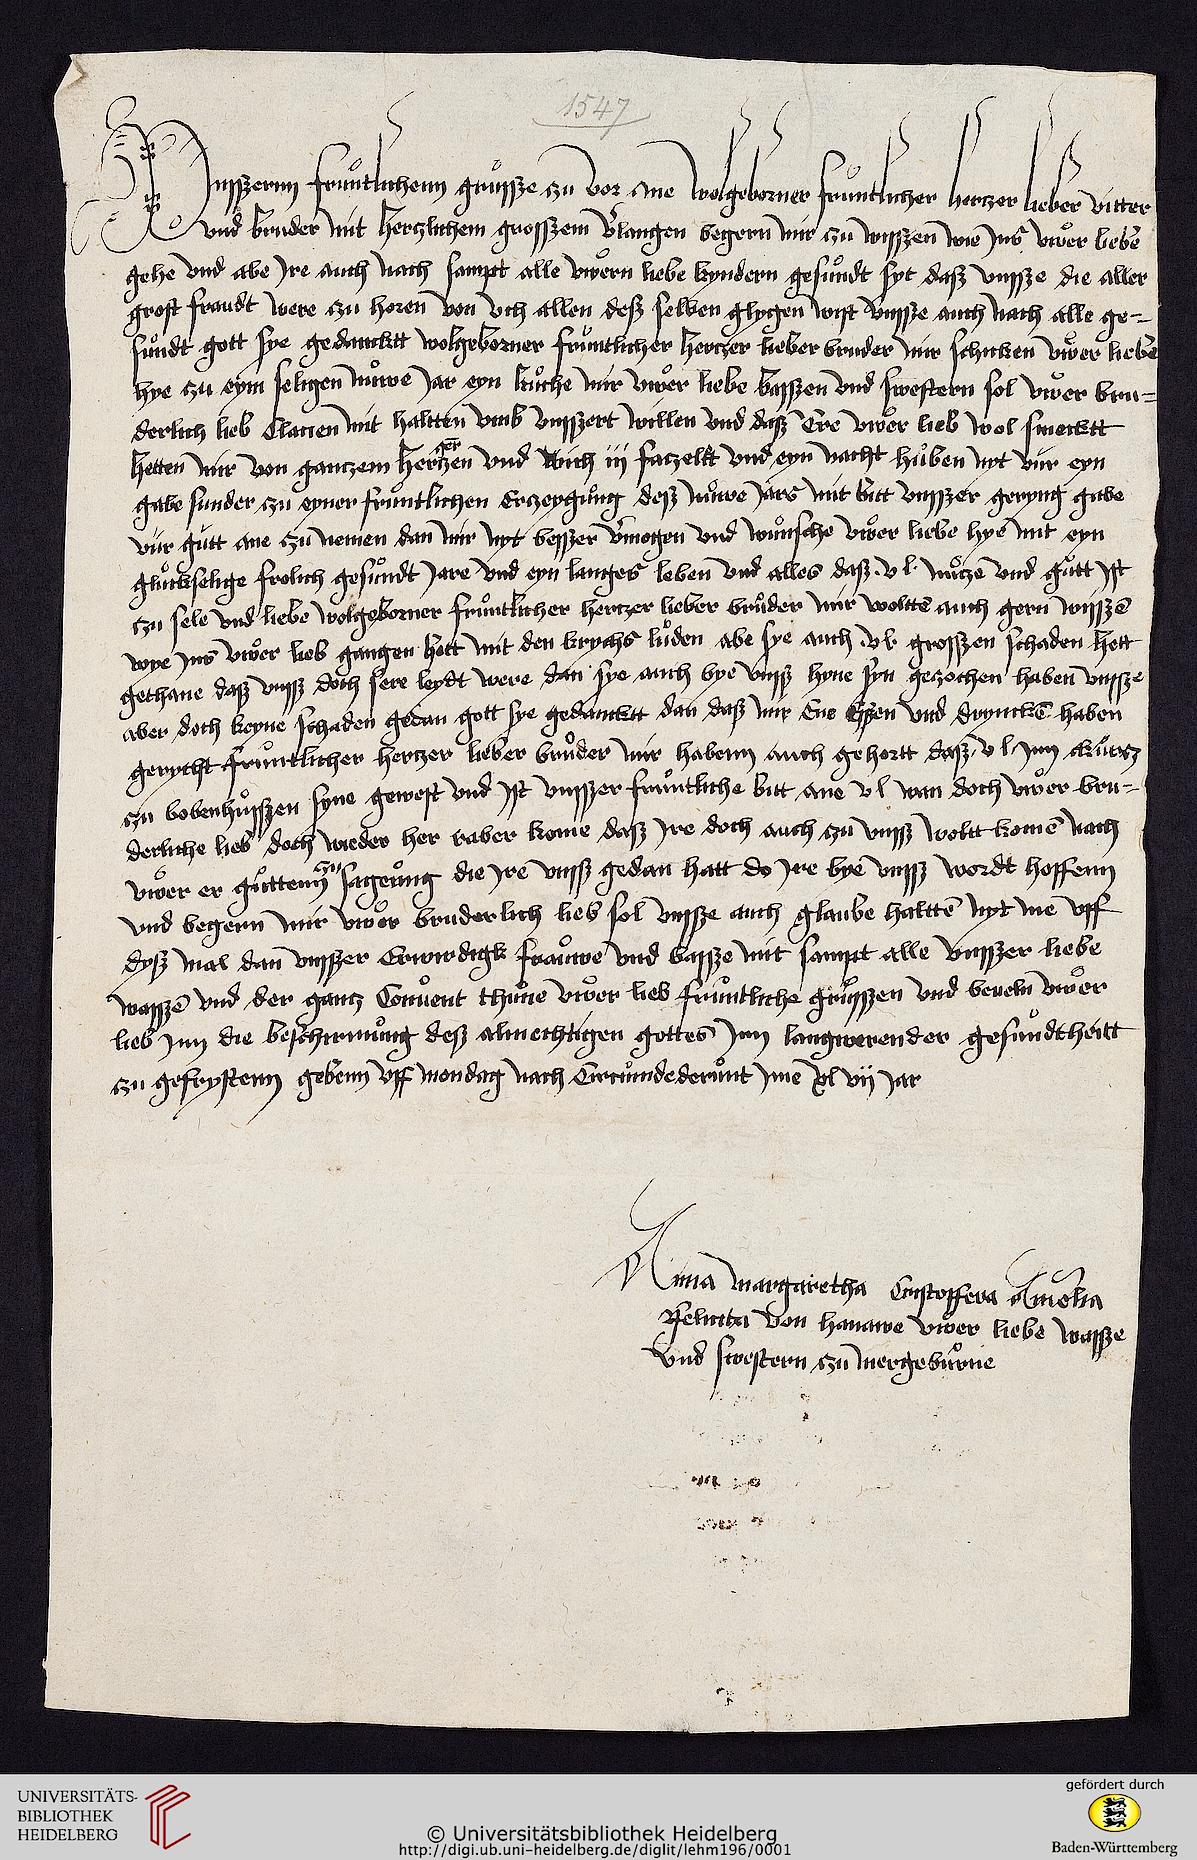 1547
Unsszernn fruntlichenn grusse zu vor ane wolgeborner fruntlicher hertzer lieber vitter
und bruder mit hertzlichem grosszem v̄langen begern mir zu wysszen wie jns uwer liebe
gehe und abe jre auch nach sampt alle uwern liebe kyndern gesundt syt dasz unssze die aller
grost fraudt were zu horen von uch allen desz selben glychen wist unssze auch nach alle ge-
sundt gott sye gedancktt wolgeborner fruntlicher hertzer lieber bruder mir schicken uwer liebe
hye zu eym seligen nuwe jar eyn kuche mir uwer liebe basszen und swestern sol uwer bru-
derlich lieb mit haltten umb unsszert willen und dasz Ere uwer lieb wol smecktt
hetten mir von gantzem hertzen gern und auch iij faczelet und eyn nacht huben nyt vur eyn
gabe sunder zu eyner fruntlichen erzeygung desz nuwe jars mit bitt unsszer geryng gabe
vur gutt ane zu nemen dan mir nyt besszer v̄mogen und wunsche uwer liebe hye mit eyn
gluckselige frolich gesundt jare und eyn langes leben und alles dasz v l nutze und gutt jst
zu sele und liebe wolgeborner fruntlicher hertzer lieber bruder mir woltē auch gern wysszē
wye jns uwer lieb gangen hett mit den krychs luden abe sye auch v l grosszen schaden hett
gethane dasz unssz doch sere leydt were dan sye auch bye unssz hyne syn gezochen haben unssze
aber doch keyne schaden gedan gott sye gedancktt dan dasz mir Ene Essen und dryncken haben
gerycht fruntlicher hertzer lieber bruder mir habenn auch gehortt dasz v l jnn kurtz
zu bobenhuszen syne gewest und jst unsszer fruntliche bitt ane v l wan doch uwer bru-
derliche lieb doch wieder her raber kome dasz jre doch auch zu unssz woltt komē nach
uwer er guttenn zu sageung die jre unssz gedan hatt do jre bye unssz wordt hoffenn
und begern mir uwer bruderlich lieb sol unssze auch glaube halttē nyt me uff
dysz mal dan unsszer Erwirdigk frauwe und basse mit sampt alle unsszer liebe
wasszē und der gantz Convent thune uwer lieb fruntliche grusszen und beveln uwer
lieb jnn die beschirmung desz almechtigen gottes jnn langwerender gesundtheitt
zu gefrystenn gebenn uff mondag nach Circumdederunt jme xl vij jar
Anna margaretha Cristoffera Amelia
Felicita von hanawe uwer liebe wassze
und swestern zu mergeburne
UNIVERSITÄTS-
BIBLIOTHEK
HEIDELBERG
© Universitätsbibliothek Heidelberg
http://digi.ub.uni-heidelberg.de/diglit/lehm196/0001
gefördert durch
Baden-Württemberg